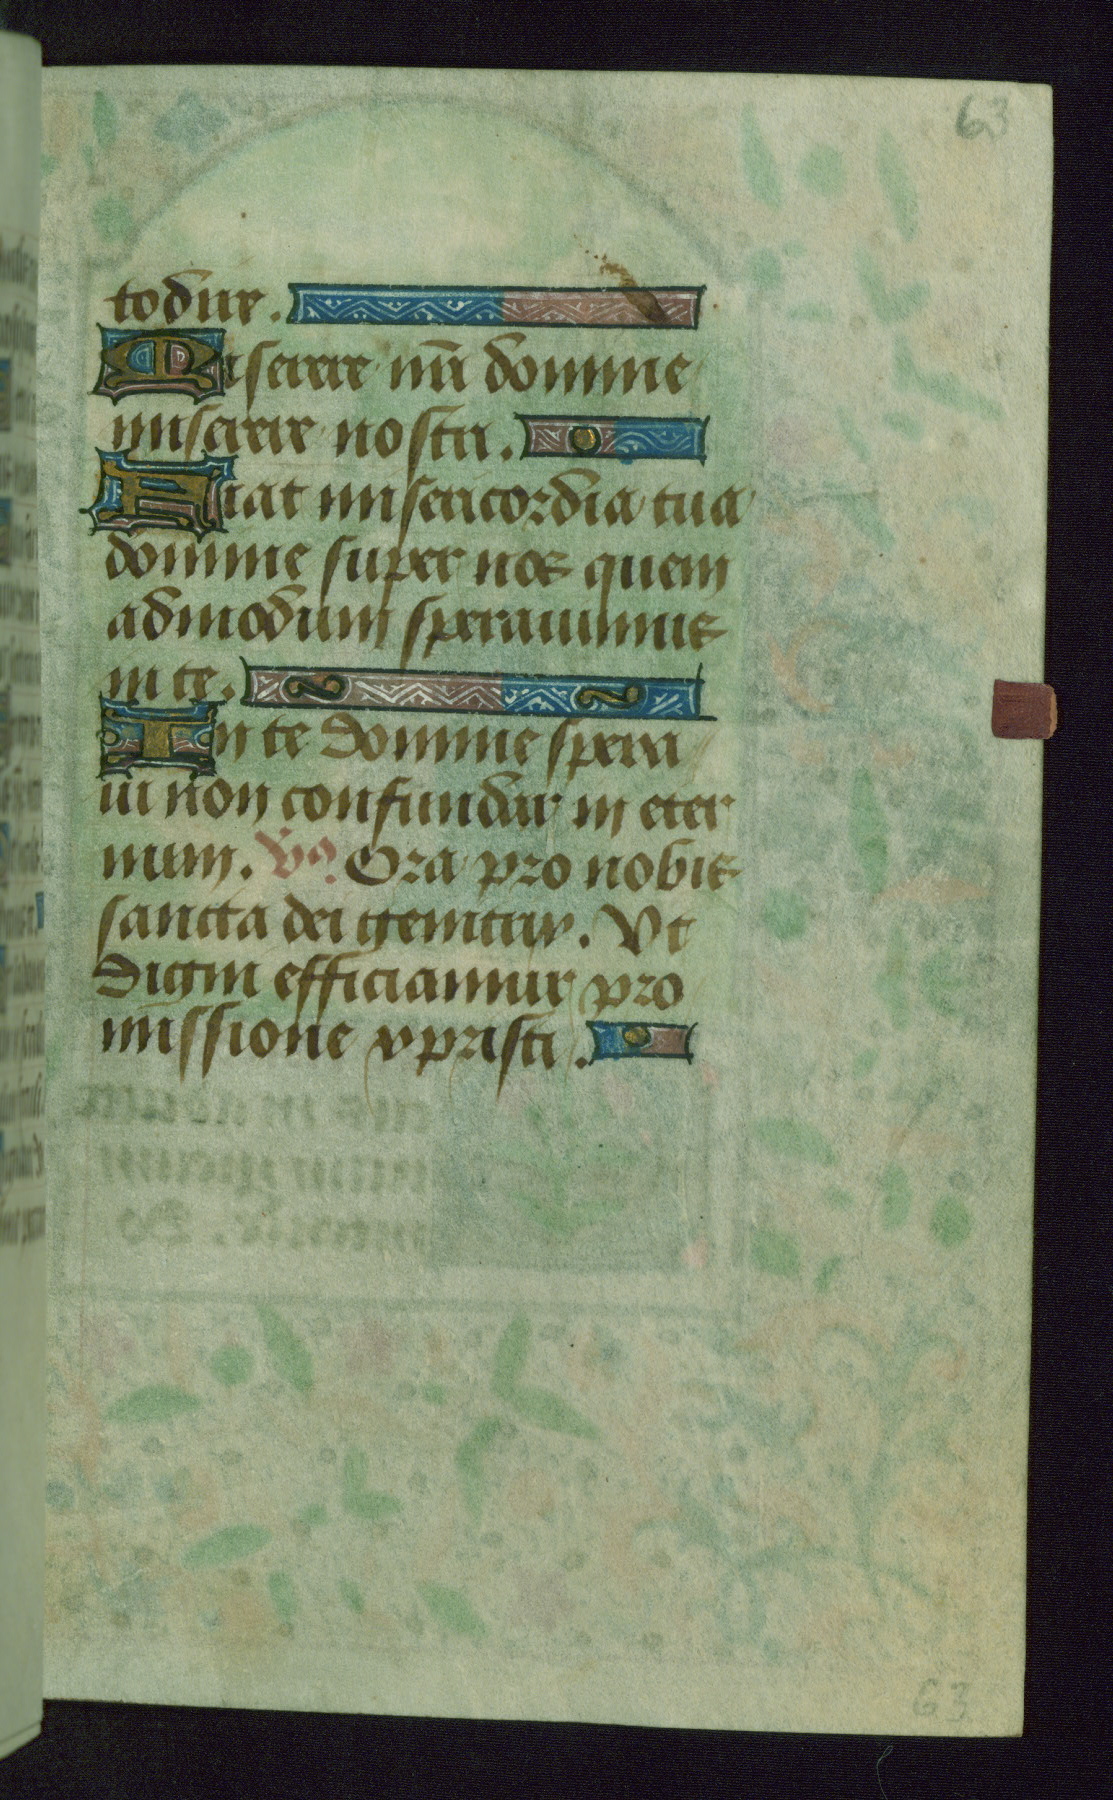 63
todire.
Miserere nr̄i domine
miserere nostri.
Fiat misericordia tua
domine super nos quem
admodum sperauimus
in te.
In te domine spera
ui non confundar in eter
num. Vꝰ. Ora pro nobis
sancta dei genitrix. Vt
digni efficiamur pro
missione xpristi.
63